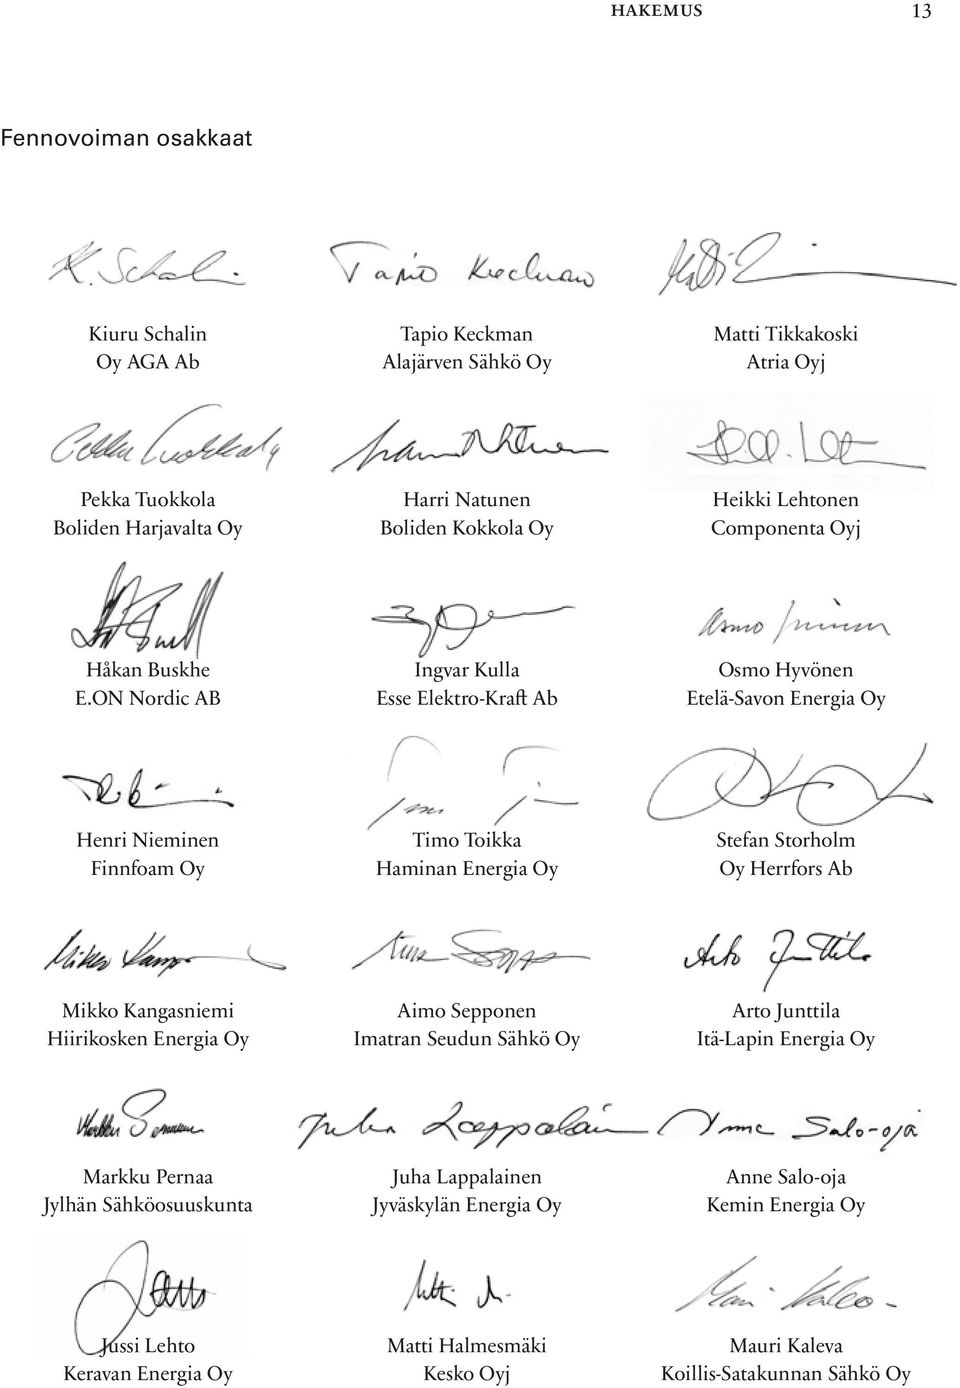 HAKEMUS 13
Fennovoiman osakkaat
K. Schalin Tapio Keckman Matti
Kiuru Schalin Tapio Keckman Matti Tikkakoski
Oy AGA Ab Alajärven Sähkö Oy Atria Oyj
Pekka Tuokkola
Pekka Tuokkola Harri Natunen Heikki Lehtonen
Boliden Harjavalta Oy Boliden Kokkola Oy Componenta Oyj
Osmo
Håkan Buskhe Ingvar Kulla Osmo Hyvönen
E.ON Nordic AB Esse Elektro-Kraft Ab Etelä-Savon Energia Oy
Henri Nieminen Timo Toikka Stefan Storholm
Finnfoam Oy Haminan Energia Oy Oy Herrfors Ab
Mikko Arto Junttila
Mikko Kangasniemi Aimo Sepponen Arto Junttila
Hiirikosken Energia Oy Imatran Seudun Sähkö Oy Itä-Lapin Energia Oy
Markku Juha Lappalainen Anne Salo-oja
Markku Pernaa Juha Lappalainen Anne Salo-oja
Jylhän Sähköosuuskunta Jyväskylän Energia Oy Kemin Energia Oy
Mauri Kaleva
Jussi Lehto Matti Halmesmäki Mauri Kaleva
Keravan Energia Oy Kesko Oyj Koillis-Satakunnan Sähkö Oy